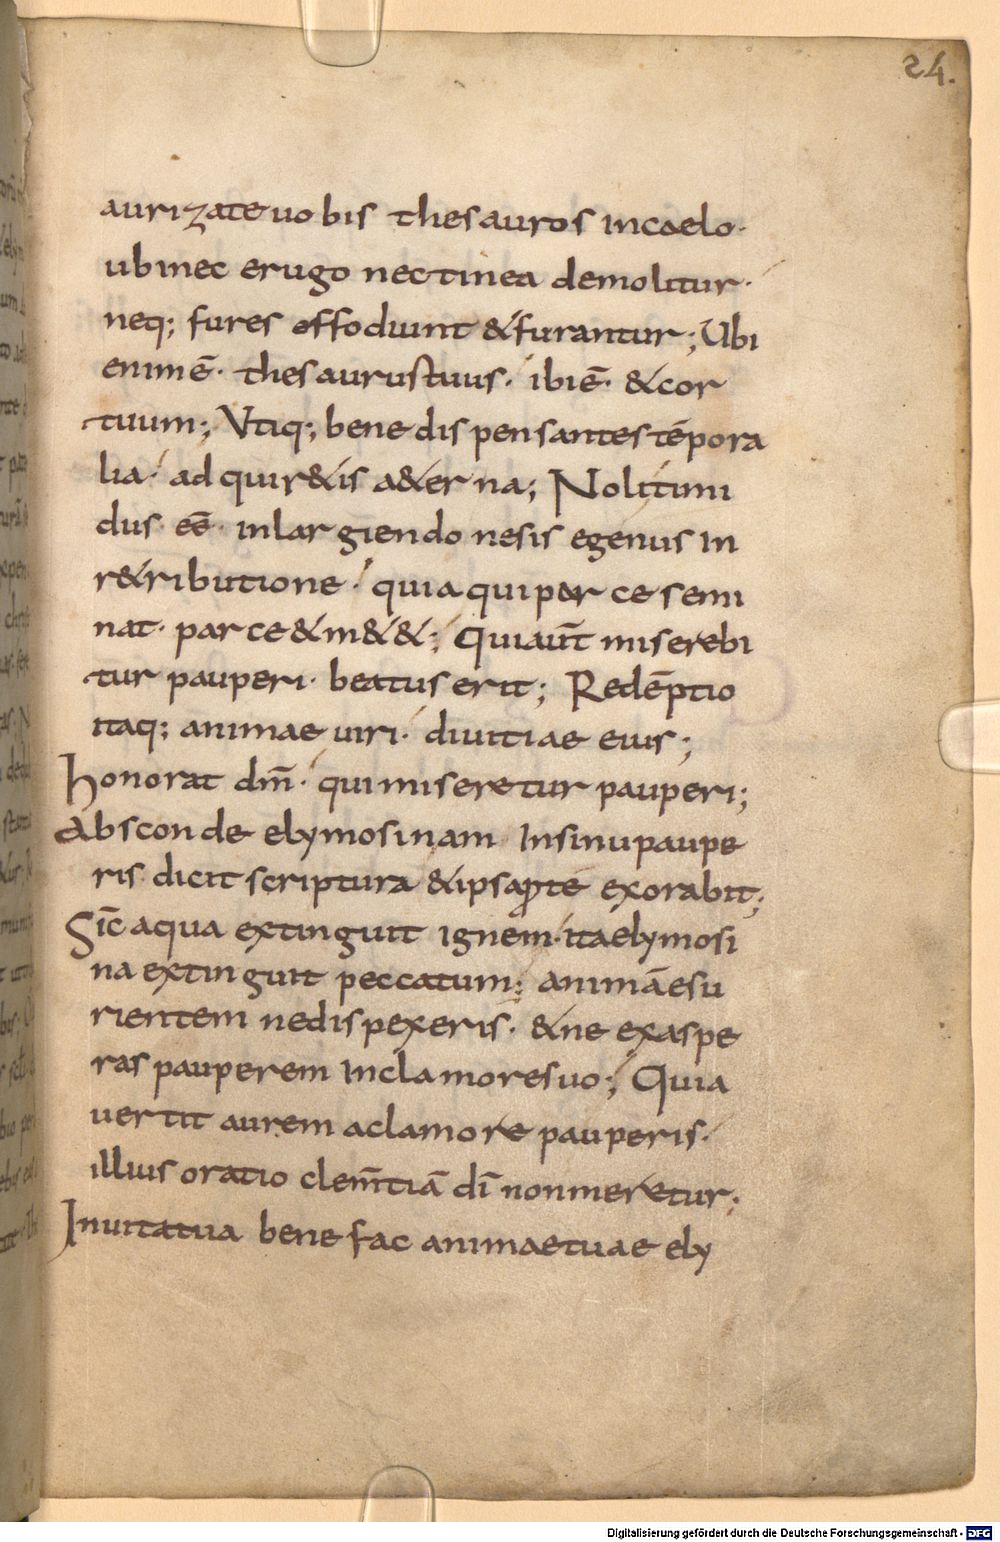 24.
aurizate uobis thesauros incaelo·
ubinec erugo nectinea demolitur·
neq; fures effodiunt &furantur; Ubi
enimē· thesaurustuus· ibiē· &cor
tuum; Vtiq; bene dispensantes tēpora
lia· adquir&is a&erna; Nolitimi
dus· eē· inlargiendo nesis egenus in
r&ributione· quia qui parce semi
nat· parce &m&&; Quiaut̄ miserebi
tur pauperi· beatus erit; Redēptio
itaq; animae uiri· diuitiae eius;
Honorat dm̄· qui miseretur pauperi;
Absconde elymosinam Insinupaupe
ris dicit scriptura &ipsaprote exorabit;
Sic̄ aqua extinguit ignem· itaelymosi
na extinguit peccatum; animāesu
rientem nedispexeris· &ne exaspe
ras pauperem Inclamoresuo; Quia
uertit aurem aclamore pauperis·
illius oratio clem̄tiā dī nonmeretur;
Inuitatua bene fac animaetuae ely
Digitalisierung gefördert durch die Deutsche Forschungsgemeinschaft - DFG